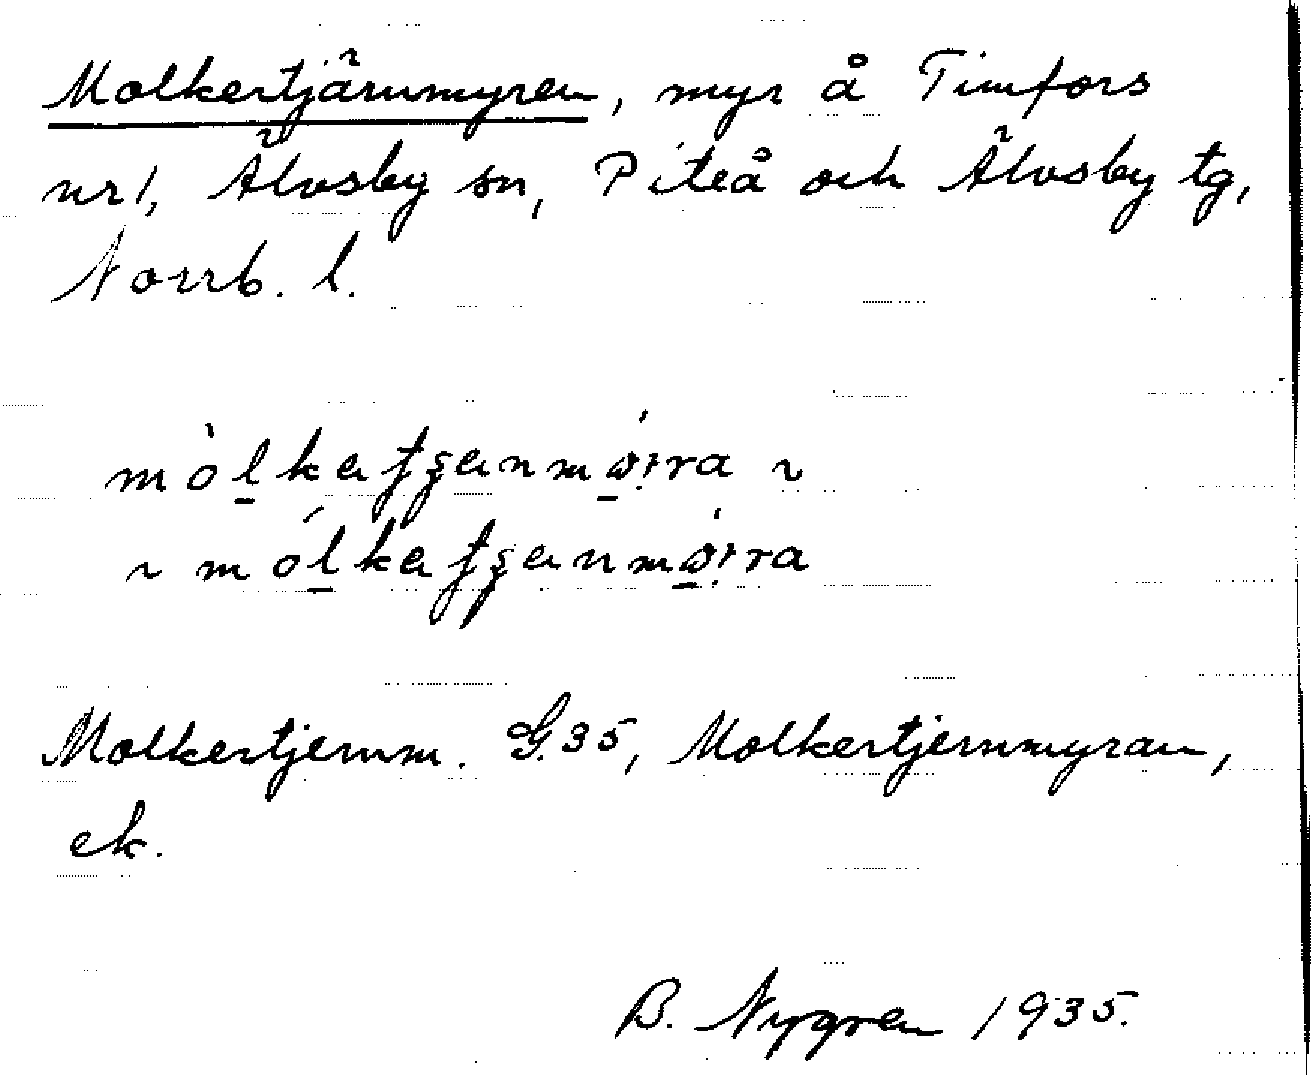 Molkertjärnmyren, myr å Timfors
nr 1, Älvsby sn, Piteå och Älvsby tg,
Norrb. l.
Molkertjernm. G.35, Molkertjernmyran,
ek.
B. Nygren 1935.